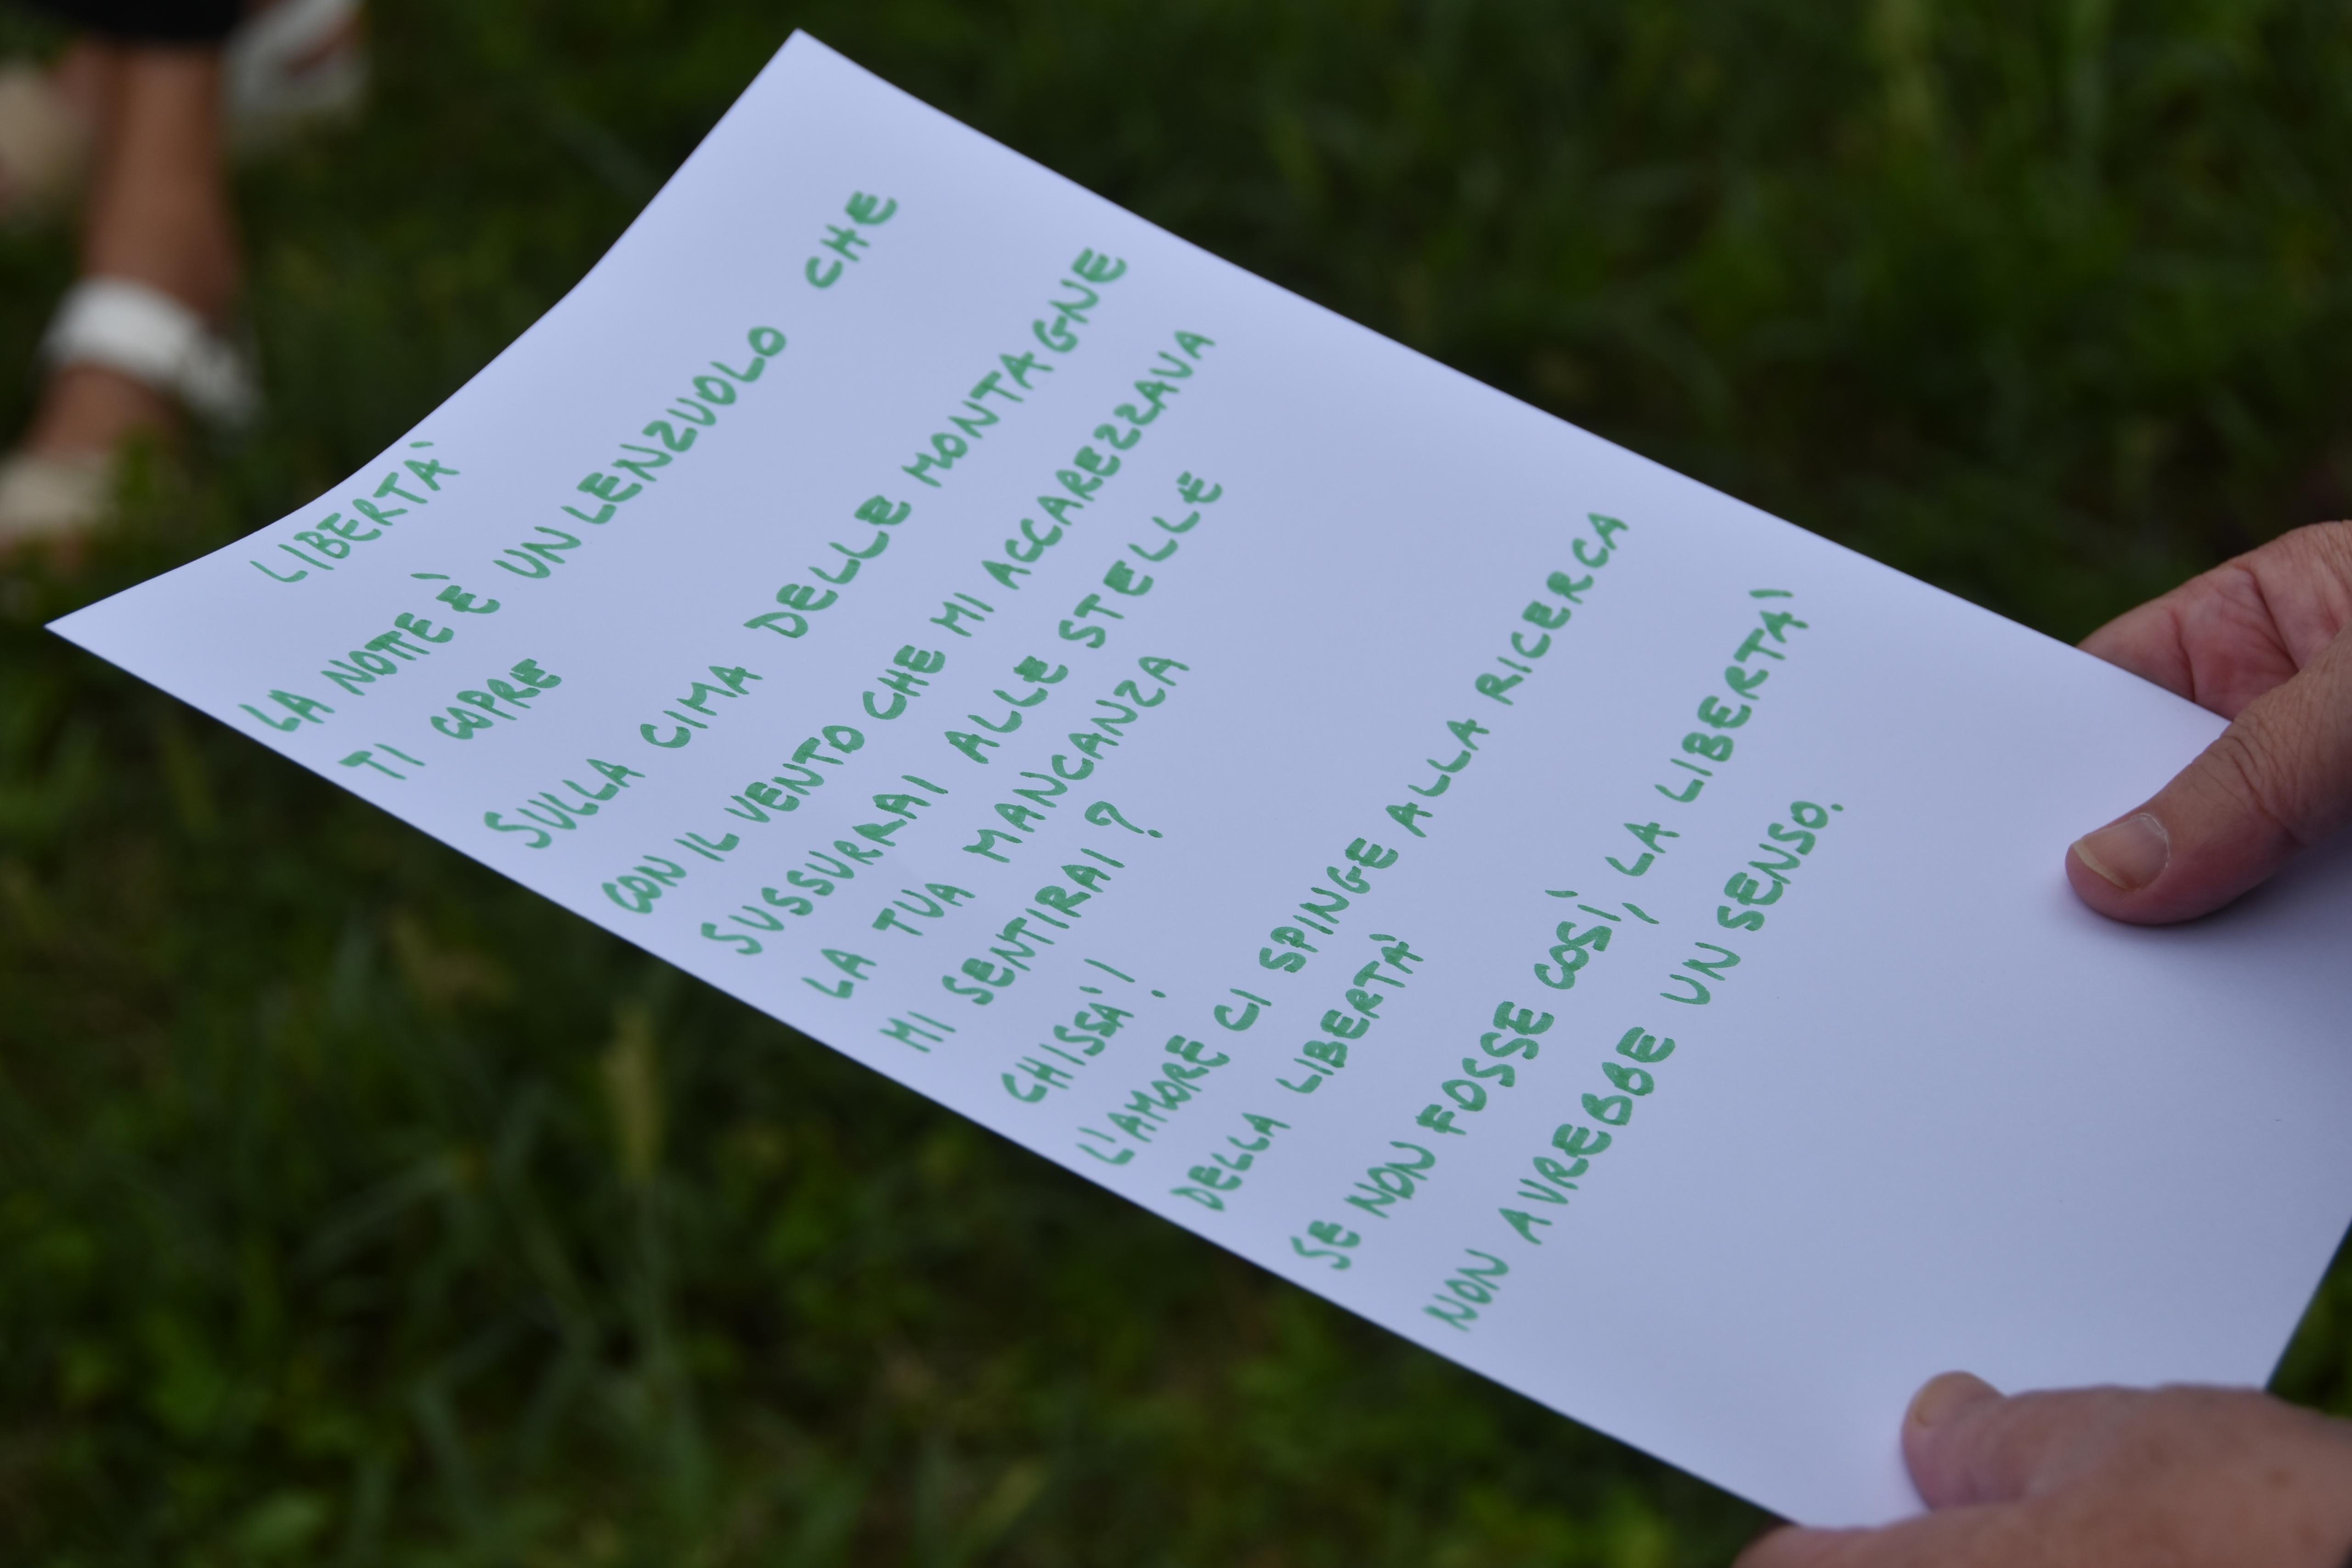 LIBERTÀ
LA NOTTE È UN LENZUOLO CHE
TI COPRE
SULLA CIMA DELLE MONTAGNE
CON IL VENTO CHE MI ACCAREZZAVA
SUSSURRAI ALLE STELLE
LA TUA MANCANZA
MI SENTIRAI?
CHISSÀ!
L'AMORE CI SPINGE ALLA RICERCA
DELLA LIBERTÀ
SE NON FOSSE COSÌ, LA LIBERTÀ
NON AVREBBE UN SENSO.